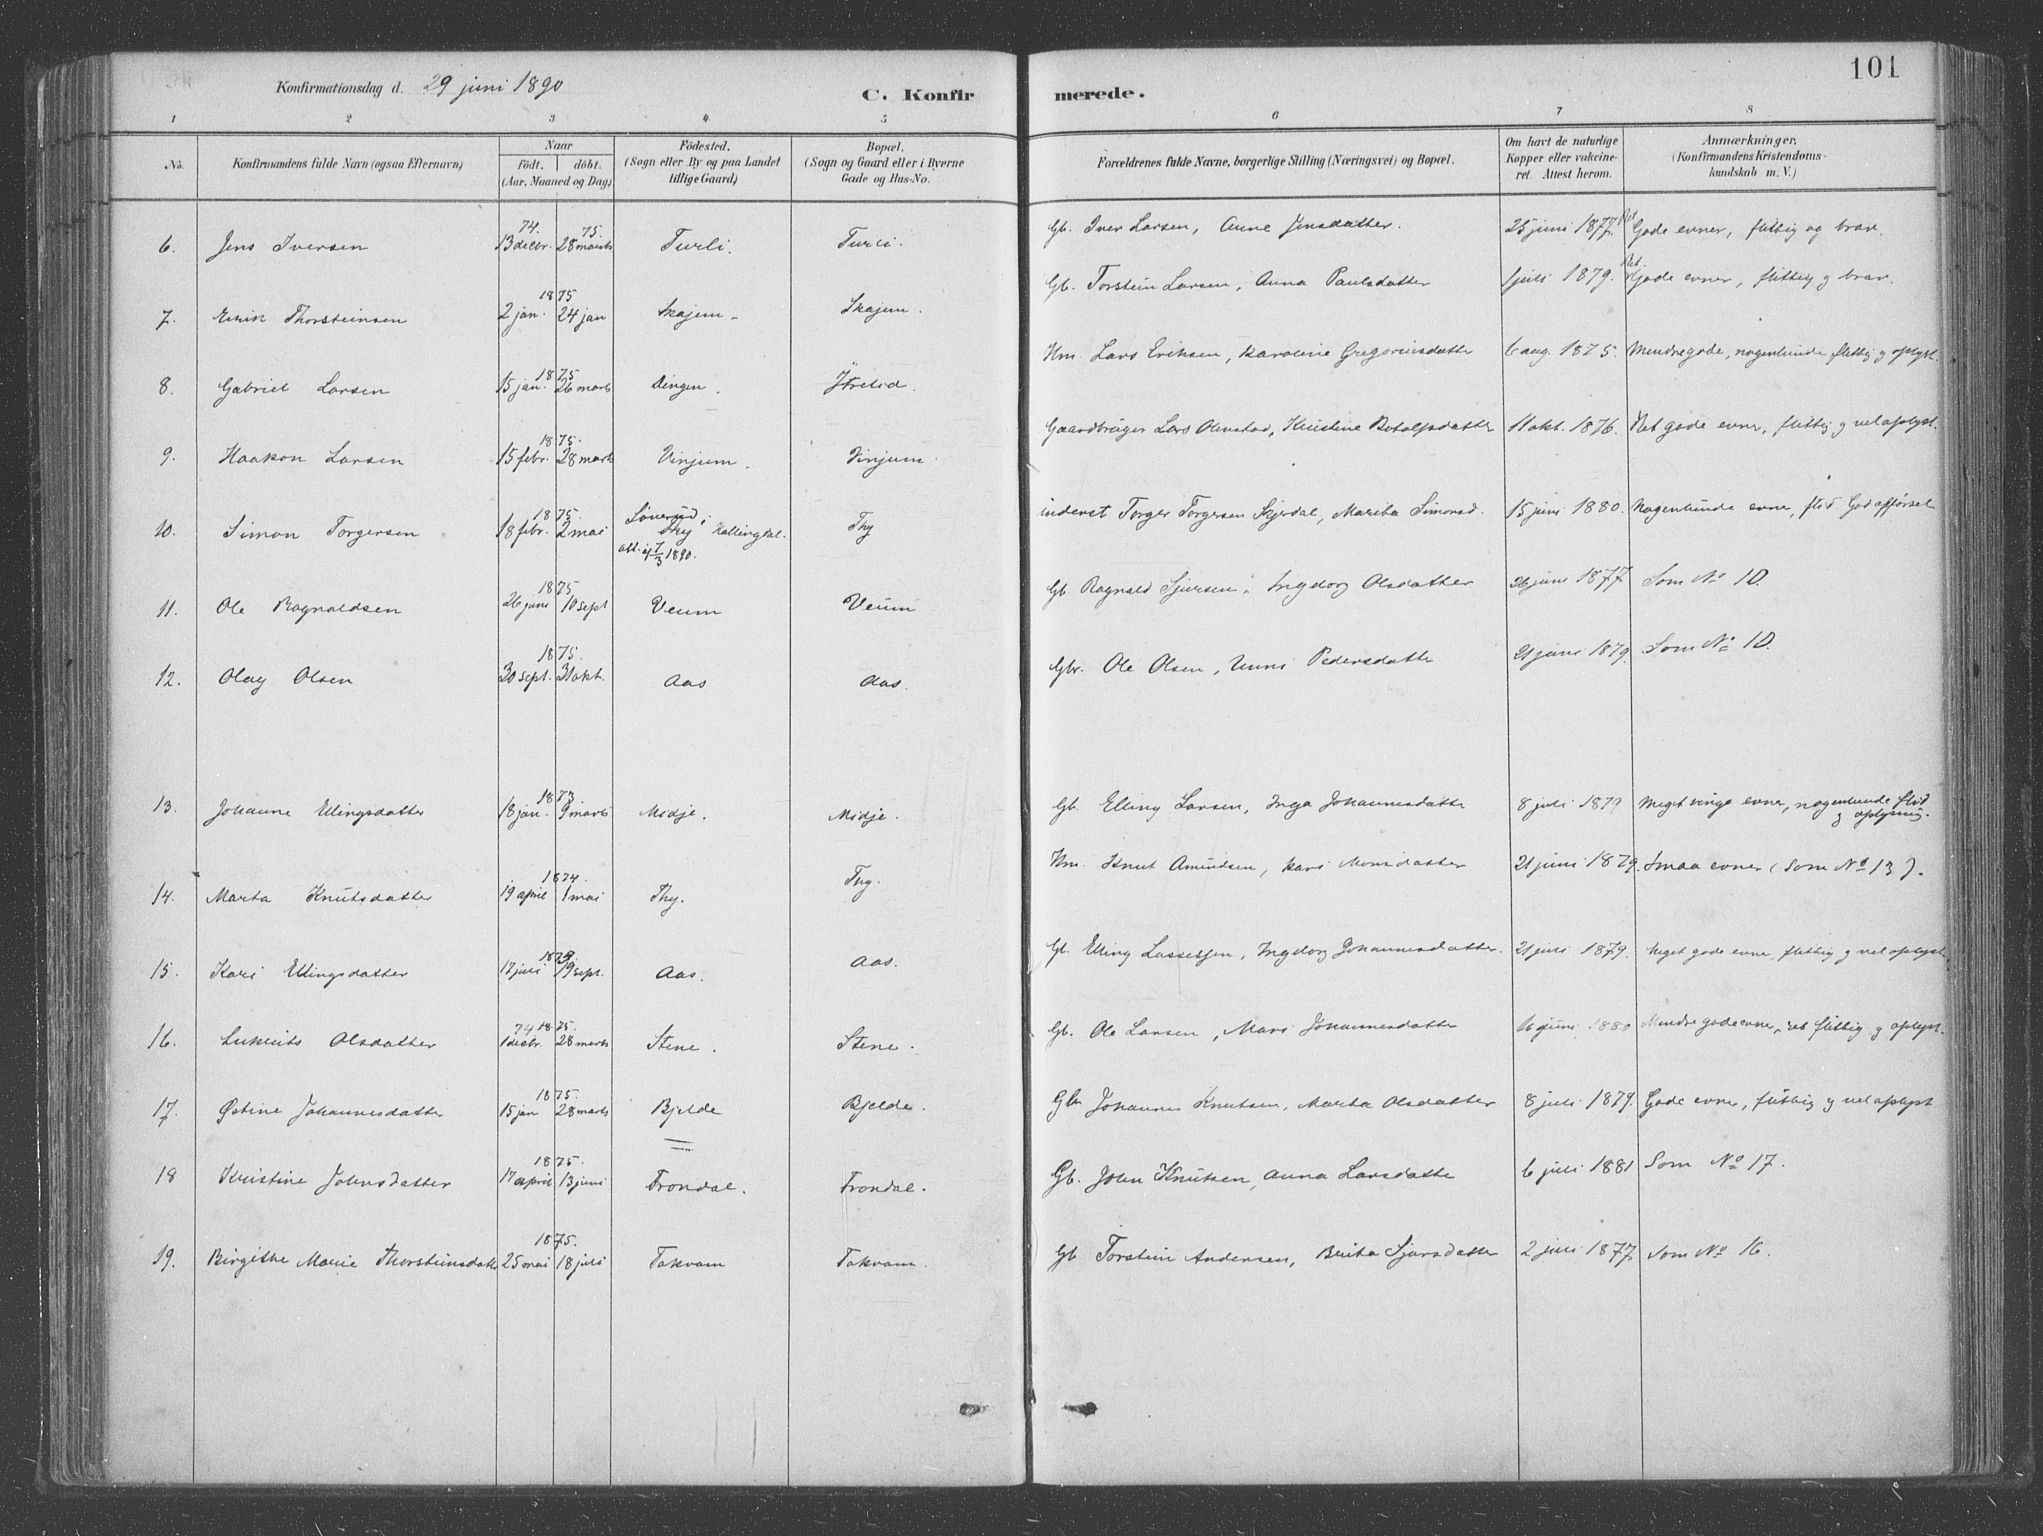 101
Konfirmationsdag d. 29 juni 1890
C. Konfirmerede.
1 2 3 4 5 6 7 8
No. Konfirmandens fulde Navn (ogsaa Efternavn) Naar født. døbt. (Aar, Maaned og Dag) Fødested. (Sogn eller By og paa Landet tillige Gaard) Bopæl. (Sogn og Gaard eller i Byerne Gade og Hus-No. Forældrenes fulde Navne, borgerlige Stilling (Næringsvei) og Bopæl. Om havt de naturlige Kopper eller vakcineret. Attest herom. Anmærkninger, (Konfirmandens Kristendomskundskab m. V.)
6. Jens Iversen 74. 13 decbr. 75. 28 marts Turli. Turli. Gb. Iver Larsen, Anne Jensdatter. 25 juni 1877. Ret Gode evner, flittig og brav.
7. Eirik Thorsteinsen 1875 2 jan. 24 jan Skajem. Skajem. Gb. Torstein Larsen, Anna Paulsdatter 1 juli 1879. Ret Gode evner, flittig g brav.
8. Gabriel Larsen 1875 15 jan. 26 marts Dingen. Hm. Lars Eriksen, Karoline Gregoriusdatter 6 aug. 1875. Mindre gode, nogenlunde flittig g oplyst.
9. Haakon Larsen 1875. 15 febr. 28 marts Vinjum. Vinjum. Gaardbruger Lars Ohnstad, Kristine Botolfsdatter 11 okt. 1876. Ret gode evner, flittig g vel oplyst.
10. Simon Torgersen 1875. 18 febr. 2 mai Hallingdal. att. 1890. Thy inderst Torger Torgersen Skjerdal, Marita Simonsd. 15 juni 1880. Nogenlunde evner, flid God opførsel
11. Ole Ragnaldsen 1875 26 juni 10 sept Veum Veum Gb Ragnald Sjursen, Ingeborg Olsdatter 26 juni 1877 Som No 10.
12. Olav Olsen 1875. 30 sept. 31 okt. Aas Aas. Gbr. Ole Olsen, Unni Pedersdatte 21 juni 1879. Som No 10.
13. Johanne Ellingsdatter 1873 18 jan. 9 marts Midje. Midje. Gb. Elling Larsen, Inga Johannesdatte 8 juli 1879 Meget ringe evner, nogenlunde flid g oplysning.
14. Marta Knutsdatter 1874. 19 april 1 mai Thy. Thy. Hm. Knut Amundsen, Kari Monsdatter 21 juni 1879. Smaa evner (Som No 13).
15. Kari Ellingsdatter 17 juli 19 sept. Aas. Aas. Gb. Elling Lassesen, Ingeborg Johannesdatter. 21 juli 1879. Meget gode evner, flittig g vel oplyst.
16. Olsdatter 74 1875. 1 decbr. 28 marts Stene. Stene. Gb. Ole Larsen, Mari Johannesdatter 16 juni 1880 Mindre gode evner, ret flittig g oplyst.
17. Østine Johannesdatter 1875. 15 jan 28 marts Bjelde Bjelde. Gb. Johannes Knutsen, Marta Olsdatter 8 juli 1879. Gode evner, flittig g vel oplyst
18 Kristine Johnsdatter 1875. 17 april 13 juni Frondal. Frondal. Gb. John Knutsen, Anna Larsdatte 6 juli 1881 Som No 17.
19. Birgithe Marie Thorsteinsdatt 1875. 25 mai 18 juli Tokvam Tokvam. Gb Torstein Andersen, Brita Sjursdatter 2 juli 1877. Som No 16.